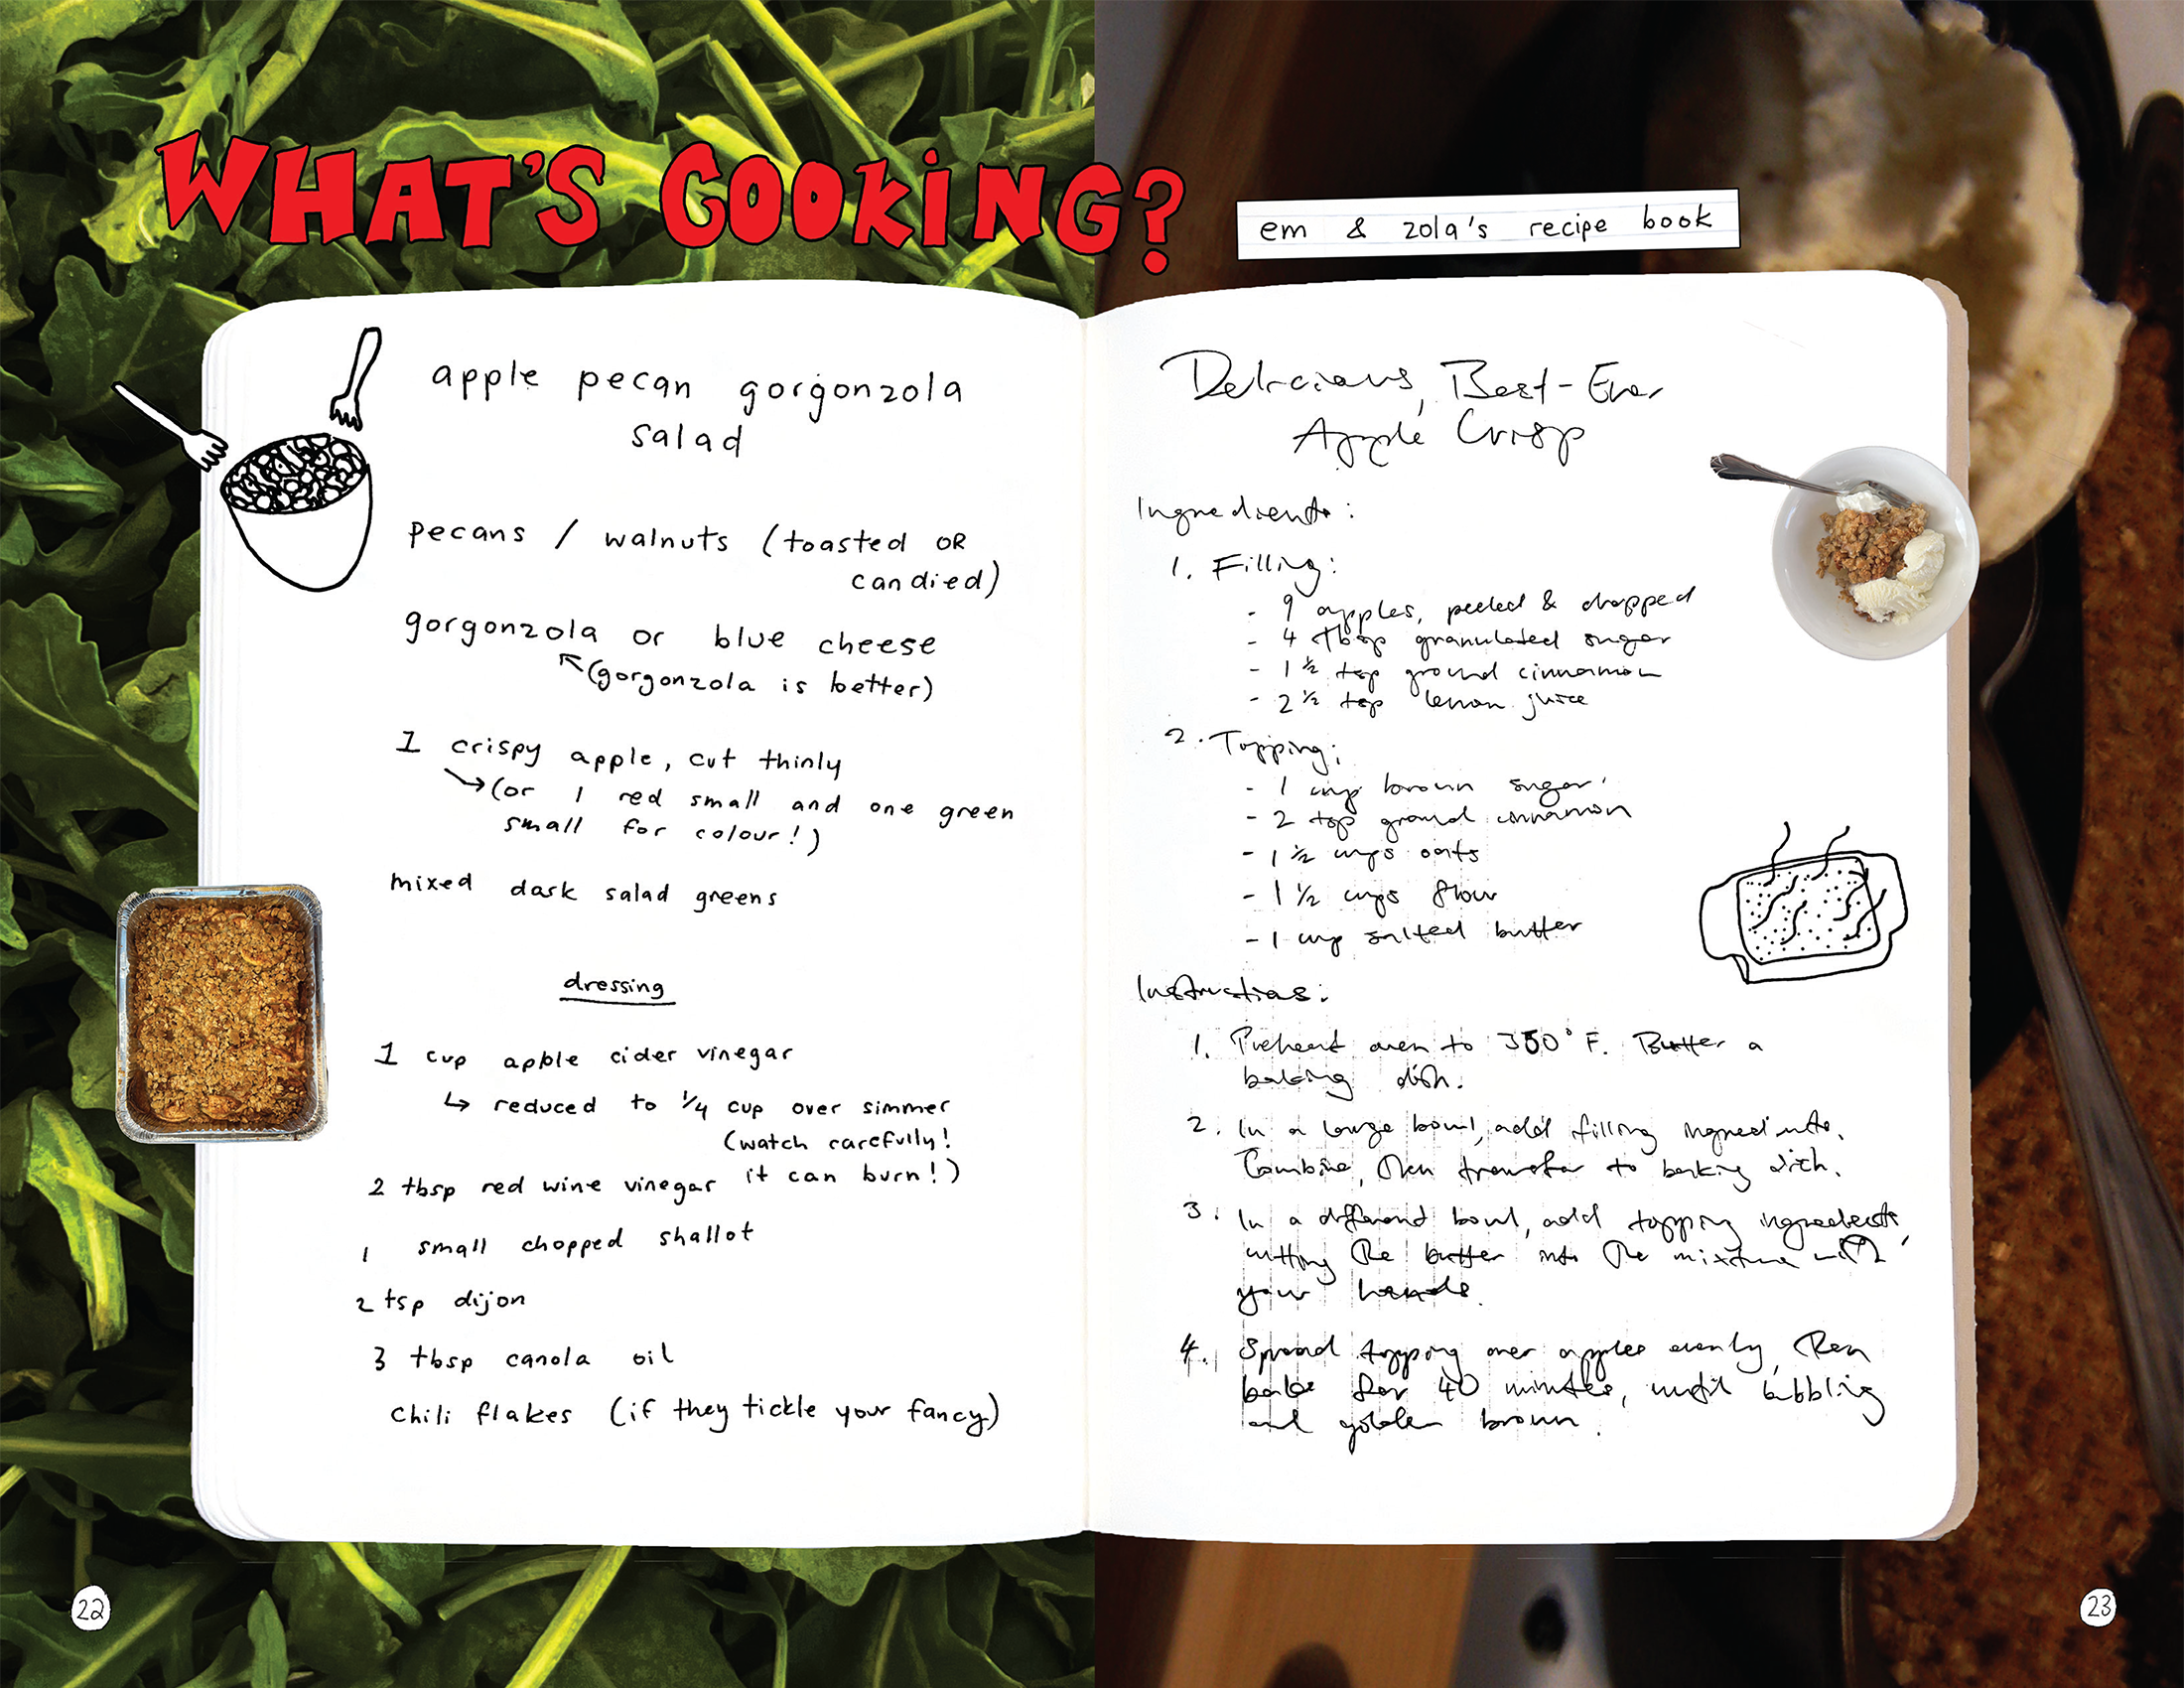 WHAT'S COOKING?
em & zola's recipe book
apple pecan gorgonzola
salad
pecans / walnuts (toasted OR
candied)
gorgonzola or blue cheese
(gorgonzola is better)
1 crispy apple, cut thinly
(or 1 red small and one green
small for colour!)
mixed dark salad greens
dressing
1 cup apple cider vinegar
↳ reduced to 1/4 cup over simmer
(watch carefully!
it can burn!)
2 tbsp red wine vinegar
1 small chopped shallot
2 tsp dijon
3 tbsp canola oil
chili flakes (if they tickle your fancy)
22
Delicious, Best-Ever
Apple Crisp
Ingredients:
1. Filling:
- 9 apples, peeled & chopped
- 4 tbsp granulated sugar
- 1 1/2 tsp ground cinnamon
- 2 1/2 tsp lemon juice
2. Topping:
- 1 cup brown sugar
- 2 tsp ground cinnamon
- 1 1/2 cups oats
- 1 1/2 cups flour
- 1 cup salted butter
Instructions:
1. Preheat oven to 350°F. Butter a
baking dish.
2. In a large bowl, add filling ingredients.
Combine, then transfer to baking dish.
3. In a different bowl, add topping ingredients,
cutting the butter into the mixture with
your hands.
4. Spread topping over apples evenly, then
bake for 40 minutes, until bubbling
and golden brown.
23